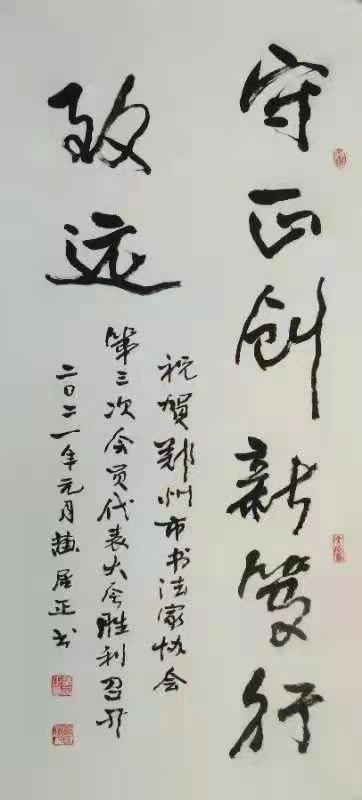 守正创新笃行
致远
祝賀郑州市书法家协会
第三次会员代表大会胜利召开
二〇二一年元月居正书